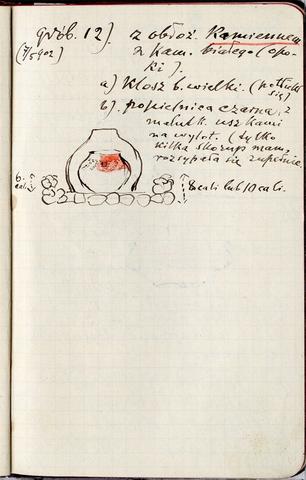 grób. 12). z obłoż. Kamiennem
(7/5 902) z kam. białego (opo-
ki).
a) Klosz b. wielki. (potłukł
się)
b) popielnica czarna, z
malutk. uszkami
na wylot. (tylko
kilka skorup mam,
rozsypała się zupełnie
6.
cali
8 cali lub 10 cali.